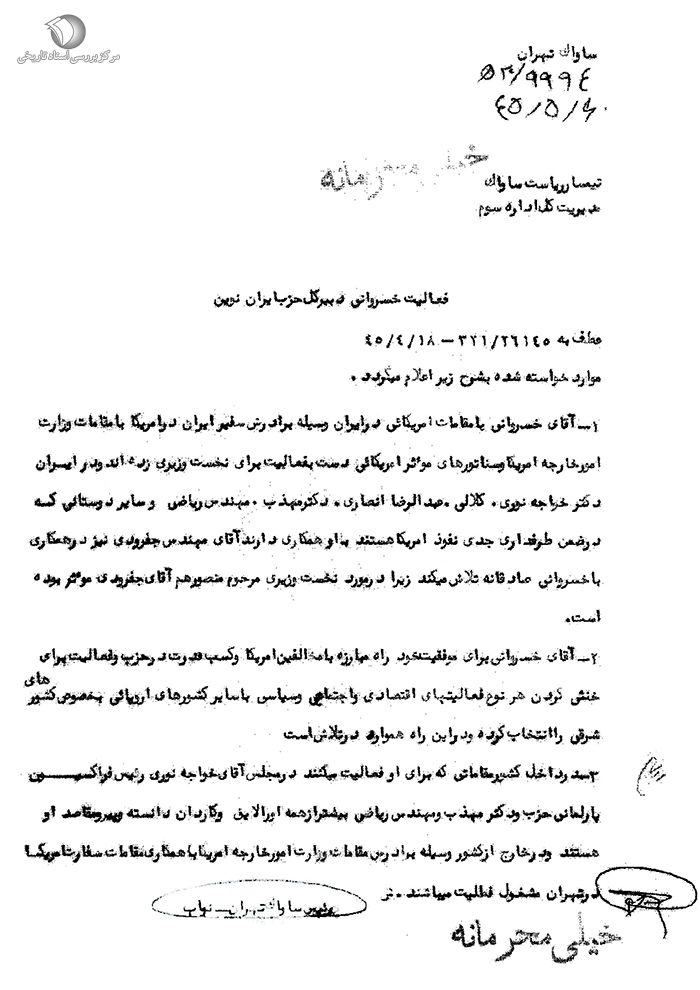 مرکز بررسی اسناد تاریخی
ساواک تهران
۵۳/۹۹۹۴
۴۵/۵/۴
خیلی محرمانه
تیمسار ریاست ساواک
مدیریت کل اداره سوم
فعالیت خسروانی دبیرکل حزب ایران نوین
عطف به ۳۲۱/۲۶۱۴۵ – ۴۵/۴/۱۸
موارد خواسته شده بشرح زیر اعلام میگردد .
۱– آقای خسروانی با مقامات امریکائی در ایران وسیله برادرش سفیر ایران در امریکا با مقامات وزارت
امور خارجه امریکا و سناتورهای موثر امریکائی دست بفعالیت برای نخست وزیری زده اند و در ایران
دکتر خواجه نوری ، کلالی ، عبدالرضا انصاری ، دکتر مهذب ، مهندس ریاضی و سایر دوستانی که
در ضمن طرفداری جدی نفوذ امریکا هستند با او همکاری دارند آقای مهندس جفرودی نیز در همکاری
با خسروانی صادقانه تلاش میکند زیرا در مورد نخست وزیری مرحوم منصور هم آقای جفرودی موثر بوده
است.
۲– آقای خسروانی برای موفقیت خود راه مبارزه با مخالفین امریکا و کسب قدرت در حزب و فعالیت برای
خنثی کردن هر نوع فعالیتهای اقتصادی و اجتماعی و سیاسی با سایر کشورهای اروپائی بخصوص کشور های
شرقی را انتخاب کرده و در این راه همواره در تلاش است
۳– در داخل کشور مقاماتی که برای او فعالیت میکنند در مجلس آقای خواجه نوری رئیس فراکسیون
پارلمانی حزب و دکتر مهذب و مهندس ریاضی بیشتر از همه او را لایق و کاردان دانسته و پیرو مقاصد او
هستند و در خارج از کشور وسیله برادرش مقامات وزارت امور خارجه امریکا با همکاری مقامات سفارت امریکا
در تهران مشغول فعالیت میباشند .
رئیس ساواک تهران – نواب
خیلی محرمانه